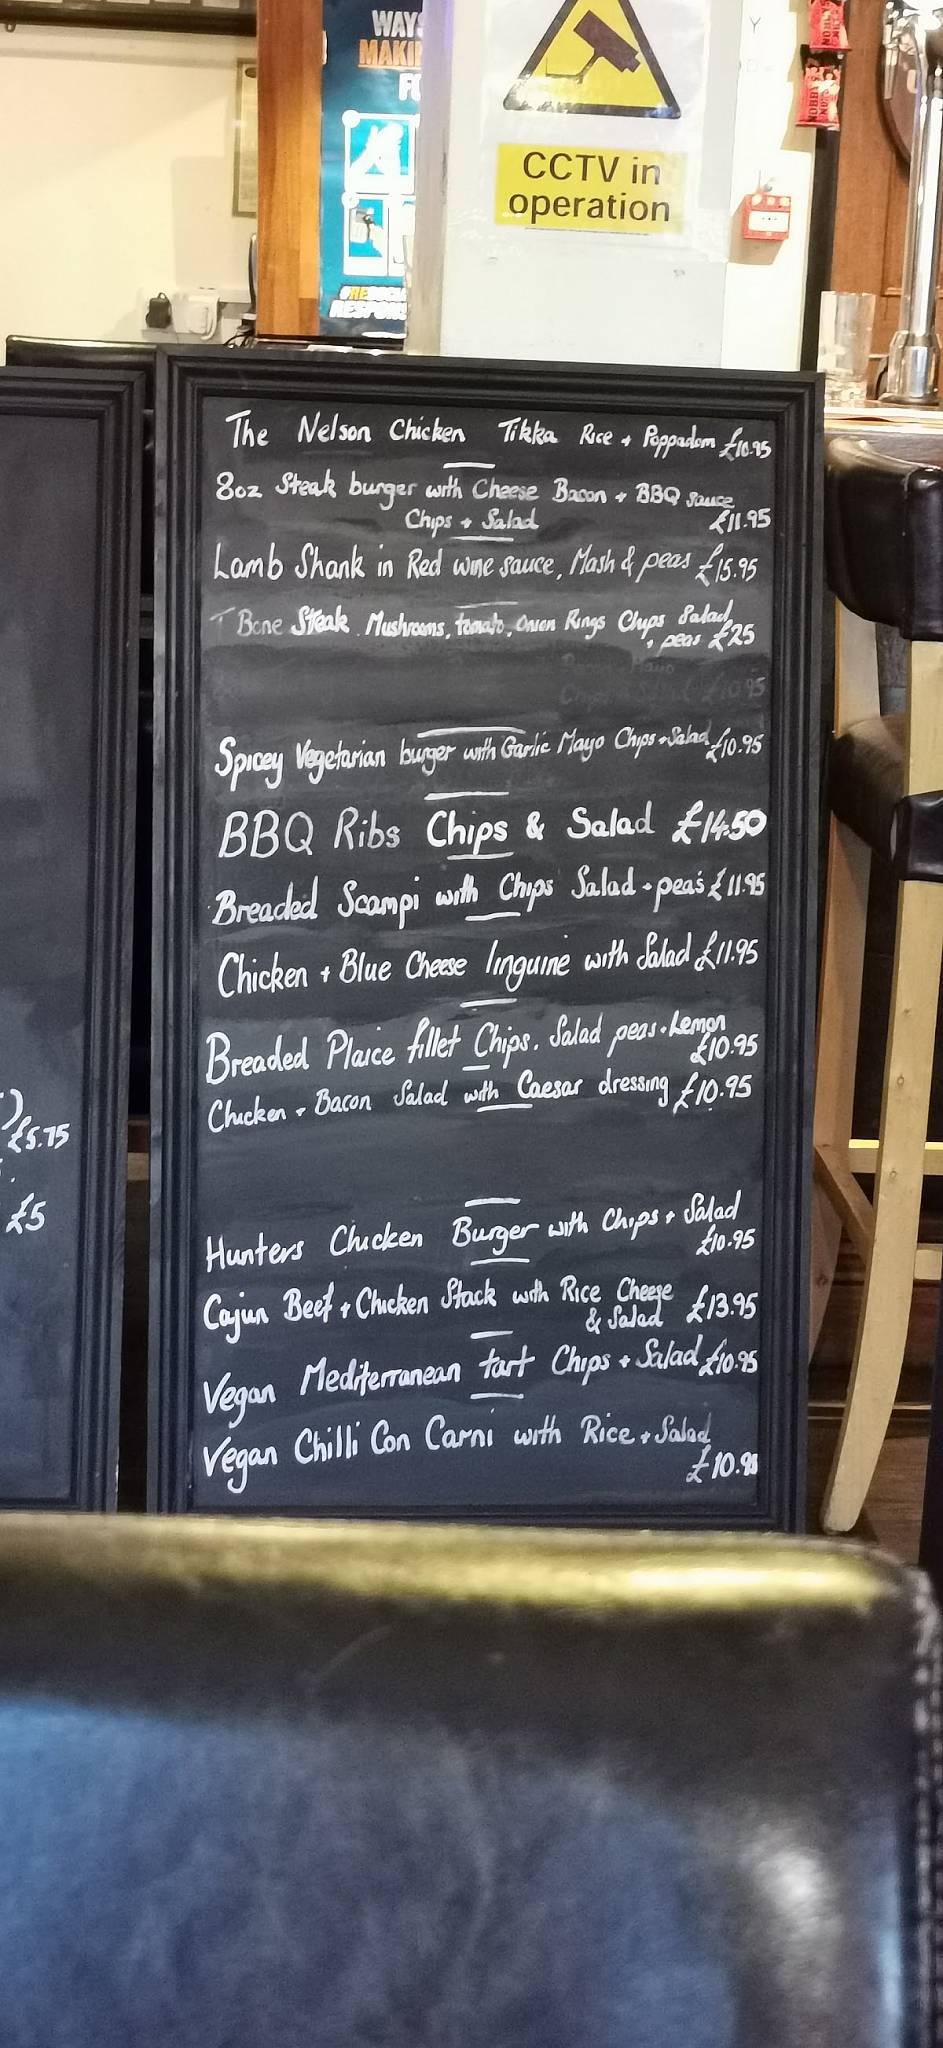 WAYS
MAKIN
FO
#RESPONS
CCTV in
operation
NOBBY'S
NOBBY'S
The Nelson Chicken Tikka Rice + Poppadom £10.95
8oz Steak burger with Cheese Bacon + BBQ sauce
Chips + Salad £11.95
Lamb Shank in Red wine sauce, Mash & peas £15.95
T Bone Steak Mushrooms, tomato, onion Rings Chips Salad
+ peas £25
Mayo
Chips + Salad £10.95
Spicey Vegetarian burger with Garlic Mayo Chips + Salad £10.95
BBQ Ribs Chips & Salad £14.50
Breaded Scampi with Chips Salad + peas £11.95
Chicken + Blue Cheese linguine with Salad £11.95
Breaded Plaice fillet Chips. Salad peas + Lemon
£10.95
Chicken + Bacon Salad with Caesar dressing £10.95
Hunters Chicken Burger with Chips + Salad
£10.95
Cajun Beef + Chicken Stack with Rice Cheese
& Salad £13.95
Vegan Mediterranean tart Chips + Salad £10.95
Vegan Chilli Con Carni with Rice + Salad
£10.95
) £5.75
£5